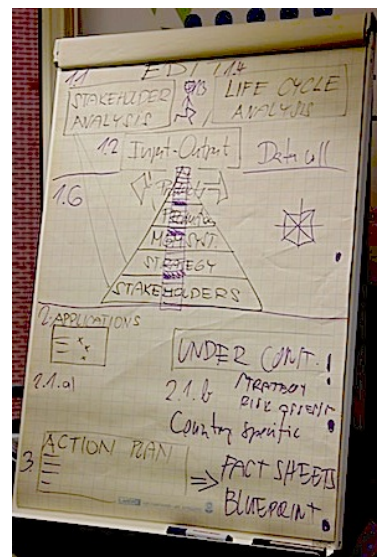 1.1 1.4
STAKEHOLDER
ANALYSIS
LIFE CYCLE
ANALYSIS
1.2 Input-Output
Data call
1.6
STRATEGY
STAKEHOLDERS
2. APPLICATIONS
2.1.a)
UNDER CONST. !
2.1.b STRATEGY
RISK
Country Specific
3 ACTION PLAN
⇒ FACT SHEETS
BLUEPRINT